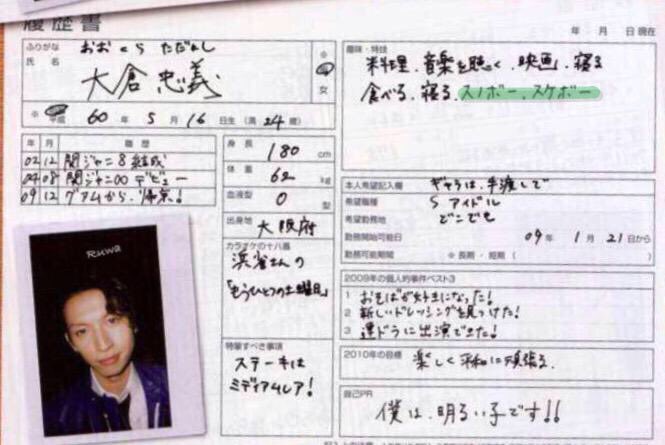 履歴書
年 月 日現在
ふりがな おおくら ただよし
氏名 大倉忠義
女
※ 60年5月16日生(満24歳)
年 月 履歴
02 12 関ジャニ8結成
04 08 関ジャニ∞デビュー
09 12 グアムから、帰京!
身長 180cm
体重 62kg
血液型 O型
出身地 大阪府
カラオケの十八番
浜省さんの
「もうひとつの土曜日」
特筆すべき事項
ステーキは
ミディアムレア!
Ruwa
趣味・特技
料理、音楽を聴く、映画、寝る
食べる、寝る、スノボー、スケボー
本人希望記入欄 ギャラは、手渡しで
希望職種 S アイドル
希望勤務地 どこでも
勤務開始可能日 09年1月21日から
勤務可能期間 ※長期・短期( )
2009年の個人的事件ベスト3
1 おそばが好きになった!
2 新しいドレッシングを見つけた!
3 連ドラに出演できた!
2010年の目標 楽しく平和に頑張る。
自己PR
僕は、明るい子です!!